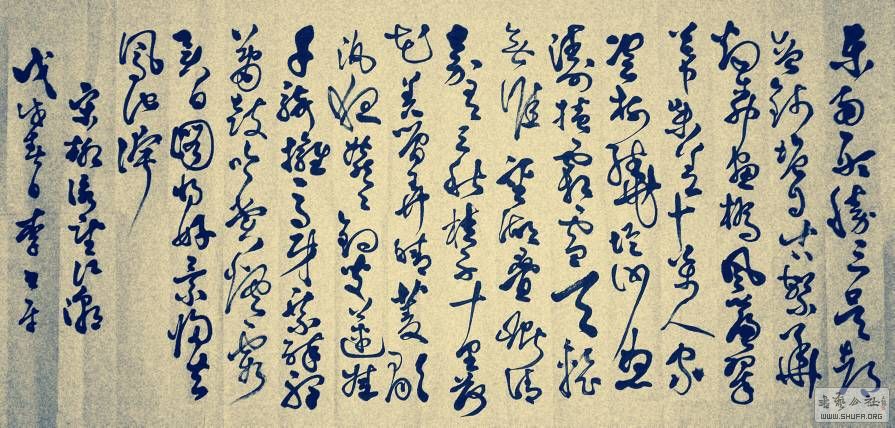 東南形勝三吳都
會錢塘自古繁華
烟柳畫橋風簾翠
幕參差十萬人家
雲樹繞堤沙怒
濤捲霜雪天塹
無涯重湖疊巘清
嘉有三秋桂子十里荷
花羌管弄晴菱歌
泛夜嬉嬉釣叟蓮娃
千騎擁高牙乘醉聽
簫鼓吟賞烟霞
異日圖將好景歸去
鳳池誇
宋柳詠望江潮
戊戌春日李
WWW.SHUFA.ORG